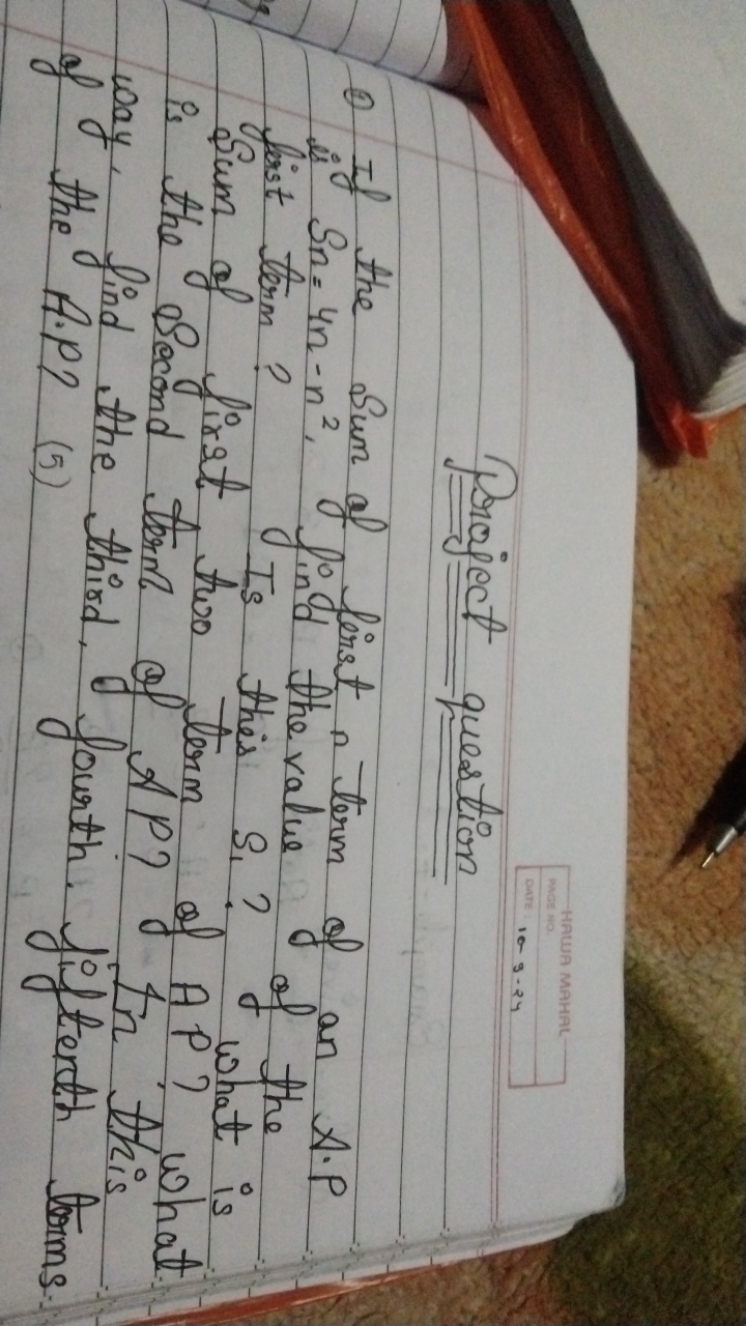 HAWA MAHAL
PAGE NO.
DATE: 10-9-24
Project question
① If the Sum of first n term of an A.P
is Sn = 4n - n², find the value of the
first term? Is this S₁? what is
Sum of first two term of AP? what
is the Second term of AP? In this
way, find the third, fourth, fifteenth terms
of the A.P? (5)